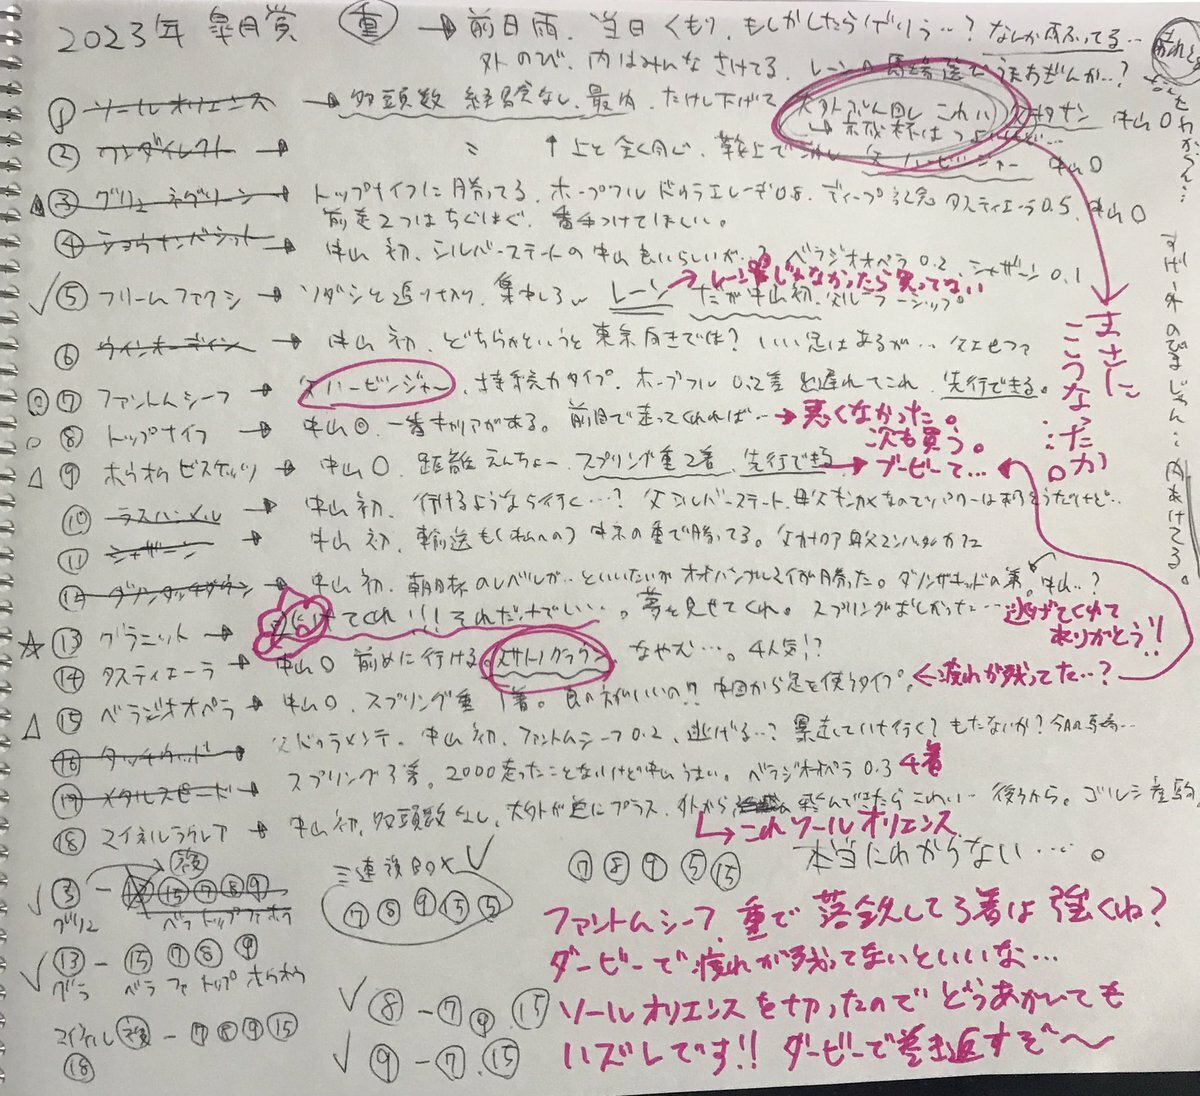 2023年 皐月賞 重 → 前日雨、当日くもり、もしかしたら げりう…? なんか雨ふってる…
外のび、内はみんなさけてる、レーンの馬場選び
① ソールオリエンス → 多頭数 経験なし、最内、たけし下げて 大外ぶん回し こわい 父キタサン 中山○
→京成杯はつよいけど…
② ワンダイレクト → 〃 ↑上と全く同じ、鞍上で 父ハービンジャー 中山○
△ ③ グリューネグリーン → トップナイフに勝ってる、ホープフル ドゥラエレーデ0.8、ディープ記念 タスティエーラ0.5、中山○
前走2つはちぐはぐ、番手つけてほしい。
④ ショウナンバシット → 中山 初、シルバーステートの中山もいいらしいが、ベラジオオペラ 0.2、シャザーン 0.1
✓ ⑤ フリームファクシ → ソダシと追り切り、集中しろ レーン だが中山初、父ルーラーシップ。
→レーンじゃなかったら買ってない
⑥ ウインオーディン → 中山 初、どちらかというと東京向きでは? いい足はあるが… 父エピファ
◎ ⑦ ファントムシーフ → 父ハービンジャー、持続力タイプ、ホープフル 0.2差 出遅れてこれ、先行できる。
○ ⑧ トップナイフ → 中山◎、一番キャリアがある。前目で走ってくれれば… →悪くなかった。
次も買う。
△ ⑨ ホウオウビスケッツ → 中山○ 距離えんちょー スプリング重2着、先行できる → ブービーて…
⑩ ラスハンメル → 中山初、行けるようなら行く…? 父シルバーステート、母父キンカメなのでパワーは有りそうだけど…
⑪ シャザーン → 中山 初、輸送も(松山への) 中京の重で勝ってる。父ロカ
⑫ ダノンタッチダウン → 中山 初、朝日杯のレベルが… といいたいが オオバンブルマイが勝った。ダノンザキッドの弟。中山…?
☆ ⑬ グラニット → 逃げてくれ!!! それだけでいい…。夢を見せてくれ。スプリングはしかった… 逃げてくれて
ありがとう!!
⑭ タスティエーラ → 中山○ 前めに行ける。父サトノクラウン、なやむ…。4人気!?
△ ⑮ ベラジオオペラ → 中山○、スプリング重 1着。良の方がいいの!? 中団から足を使うタイプ。←疲れが残ってた…?
⑯ タッチウッド → 父ドゥラメンテ、中山 初、ファントムシーフ 0.2、逃げる…? 暴走していけ行く? もたないか? 今日の馬場…
⑰ メタルスピード → スプリング3着。2000走ったことないけど中山うまい。ベラジオオペラ 0.3 4着
⑱ マイネルラウレア → 中山初、多頭数なし、大外が逆にプラス、外から 飛んできたらこわい… 後ろから。ゴルシ産駒
↳これソールオリエンス
本当にわからない…。
まさに
こうなったか
…。
外のびまじゃん… 内あけてる。
✓ ③ − ⑮⑦⑧⑨
グリュ ベラ トップ ファ ホウ
✓ ⑬ − ⑮ ⑦ ⑧ ⑨
グラ ベラ ファ トップ ホウオウ
マイネル 複 − ⑦⑧⑨⑮
⑱
三連複BOX ✓
⑦ ⑧ ⑨ ⑮ ⑤
⑦ ⑧ ⑨ ⑤ ⑮
✓ ⑧ − ⑦ ⑨ ⑮
✓ ⑨ − ⑦、⑮
ファントムシーフ、重で落鉄して3着は強くね?
ダービーで疲れが残ってないといいな…
ソールオリエンスを切ったのでどうあがいても
ハズレです!! ダービーで巻き返すぞ〜